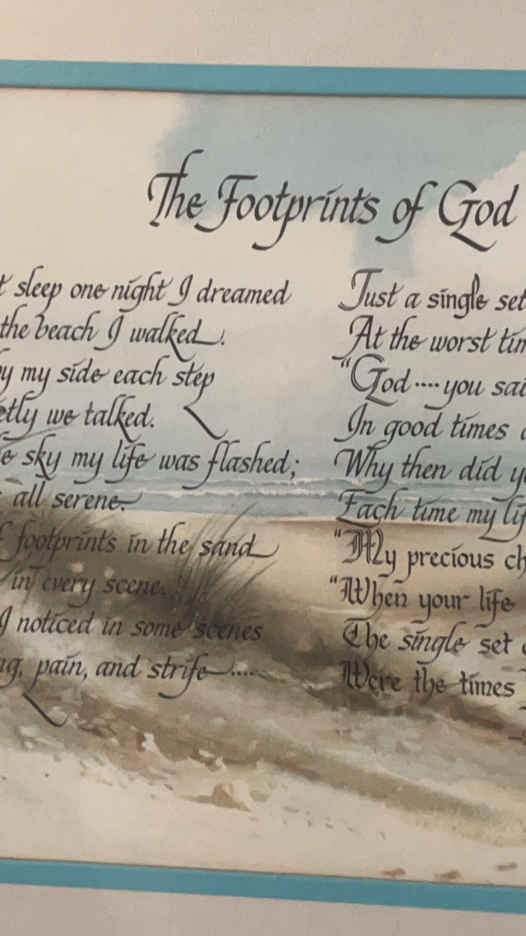 The Footprints of God
sleep one night I dreamed
the beach I walked.
my side each step
we talked.
sky my life was flashed;
all serene.
footprints in the sand
in every scene.
I noticed in some scenes
pain, and strife....
Just a single set
At the worst
"God....you
In good times
Why then did
Each time my
"My precious
"When your life
The single set
Were the times